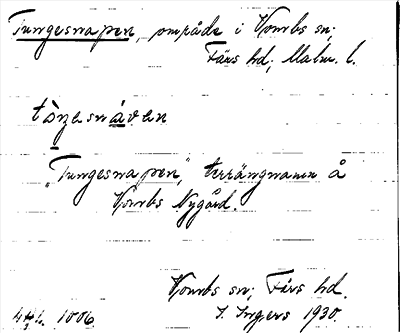 Tungesnapen, område i Vombs sn;
Färs hd, Malm. l.
tòŋesnáven
"Tungesnapen", terrängnamn å
Vombs Nygård.
Vombs sn; Färs hd.
1006. I. Ingers 1930